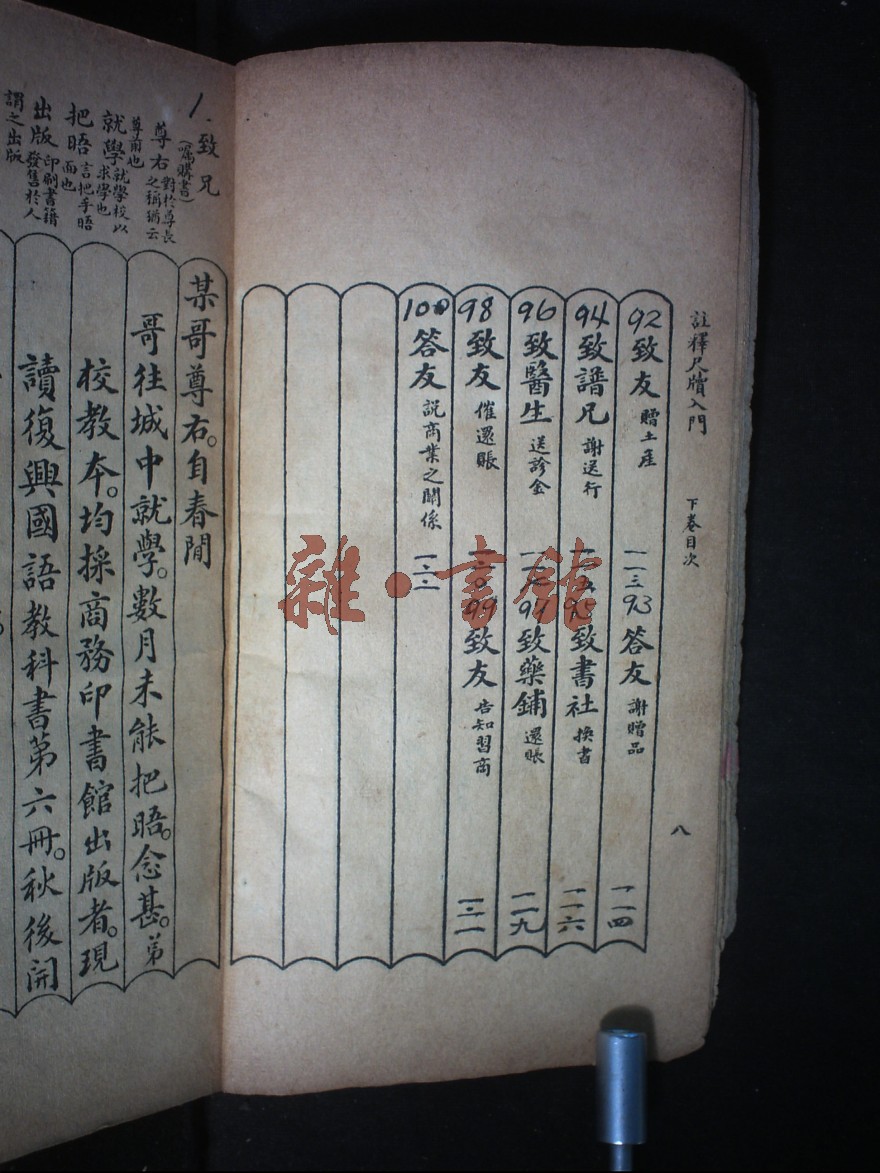 註釋尺牘入門
下卷目次
八
92 致友 贈土產 一一三
93 答友 謝贈品 一一四
94 致譜兄 謝送行 一一五
95 致書社 換書 一一六
96 致醫生 送診金
97 致藥鋪 還賬 一一九
98 致友 催還賬
99 致友 告知習商
100 答友 説商業之關係
雜·書館
1. 致兄
(囑購書)
尊右 對於尊長之稱猶云尊前也
就學 就學校以求學也
把晤 言把手晤面也
出版 印刷書籍發售於人謂之出版
某哥尊右。自春間
哥往城中就學。數月未能把晤。念甚。弟
校教本。均採商務印書館出版者。現
讀復興國語教科書第六冊。秋後開